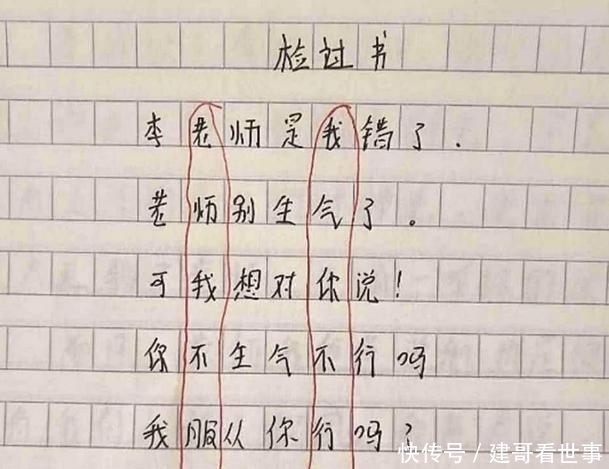 检过书
李老师是我错了.
老师别生气了。
可我想对你说!
你不生气不行吗
我服从你行吗?
快传号/建哥看世事